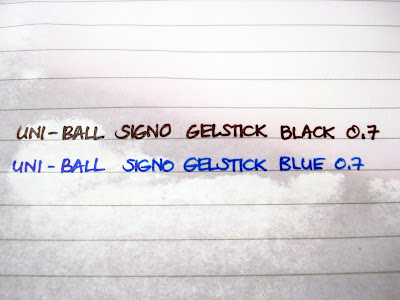 UNI-BALL SIGNO GELSTICK BLACK 0.7
UNI-BALL SIGNO GELSTICK BLUE 0.7